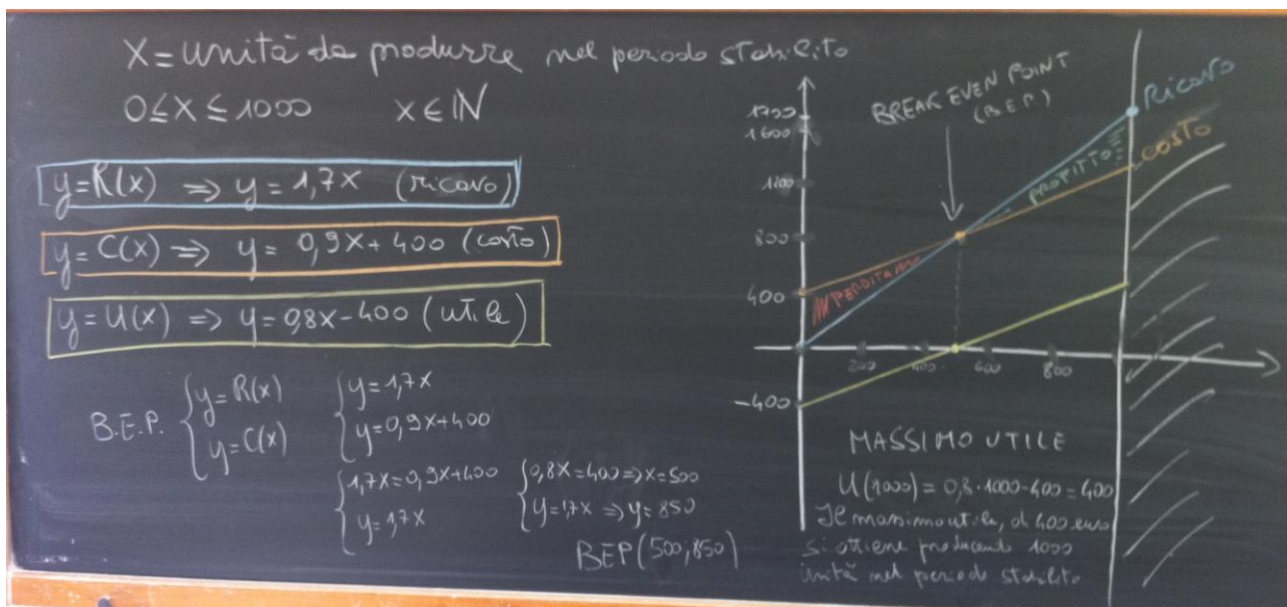 X = unità da produrre nel periodo stabilito
0 ≤ X ≤ 1000 x ∈ IN
y = R(x) ⇒ y = 1,7x (ricavo)
y = C(x) ⇒ y = 0,9x + 400 (costo)
y = U(x) ⇒ y = 0,8x - 400 (utile)
B.E.P. { y = R(x) { y = 1,7x
{ y = C(x) { y = 0,9x + 400
{ 1,7x = 0,9x + 400 { 0,8x = 400 ⇒ x = 500
{ y = 1,7x { y = 1,7x ⇒ y = 850
BEP (500, 850)
BREAK EVEN POINT
(B.E.P.)
1700
1600
1200
800
400
-400
200 400 600 800
RICAVO
COSTO
PROFITTO
PERDITA
MASSIMO UTILE
U(1000) = 0,8 · 1000 - 400 = 400
Il massimo utile, di 400 euro
si ottiene producendo 1000
unità nel periodo stabilito